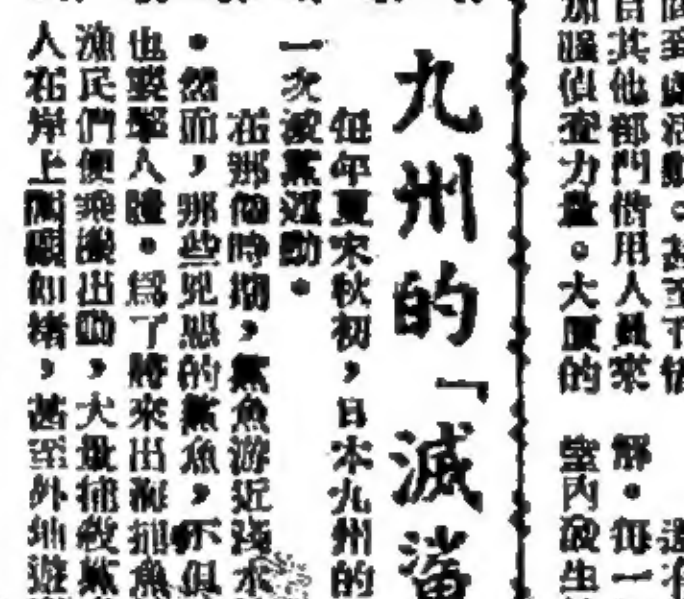 其他部門借用人員來
加強偵查力量。大廈的
解。每一
室內發生
九州的「滅鯊
每年夏末秋初，日本九州的
一次滅鯊運動。
在那個時期，鯊魚游近淺水
。然而，那些兇惡的鯊魚，不但
也要人。爲了將來出海捕魚
漁民們便乘機出動，大量捕殺鯊
人在岸上圍觀如堵，甚至外地遊